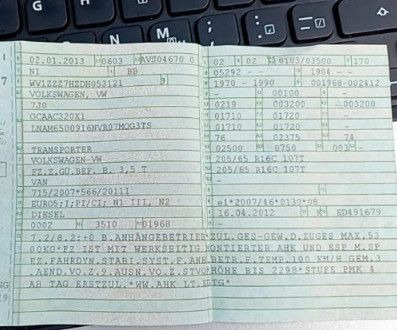 02.01.2013 0603 AVS04670 0
N1 BB
WV1ZZZ7HZDH053121
VOLKSWAGEN, VW
7J0
GCAAC320X1
LNAM6500916NVR07MQG3TS
TRANSPORTER
VOLKSWAGEN-VW
FZ.Z.GÜ.BEF. B. 3,5 T
VAN
715/2007*566/2011I
EURO5;I;PI/CI; N1 III, N2
DIESEL
0002 35I0 01968
02 02 0103/03500 170
05292 - - 1904 - -
1970 - 1990 001968-002412
- 00100 -
0219 003200 - 003200
01710 01720 -
01710 01720 -
76 02375 74
02500 0750 003 -
205/65 R16C 107T
205/65 R16C 107T
-
e1*2007/46*0130*08
16.04.2012 K
7.2/8.2:+0 B.ANHÄNGEBETRIEB ZUL.GES-GEW.D.ZUGES MAX.53
00KG*FZ IST MIT WERKSEITIG MONTIERTER AHK UND ESP M.SP
EZ.FAHRDYN.STABI.SYST.F.ANH BETR.F.TEMP.100 KM/H GEM.3
.AEND.VO.Z.9.AUSN.VO.Z.STVO*HÖHE BIS 2298*STUFE PMK 4
AB TAG ERSTZUL.*WW.AHK LT.EGTG*